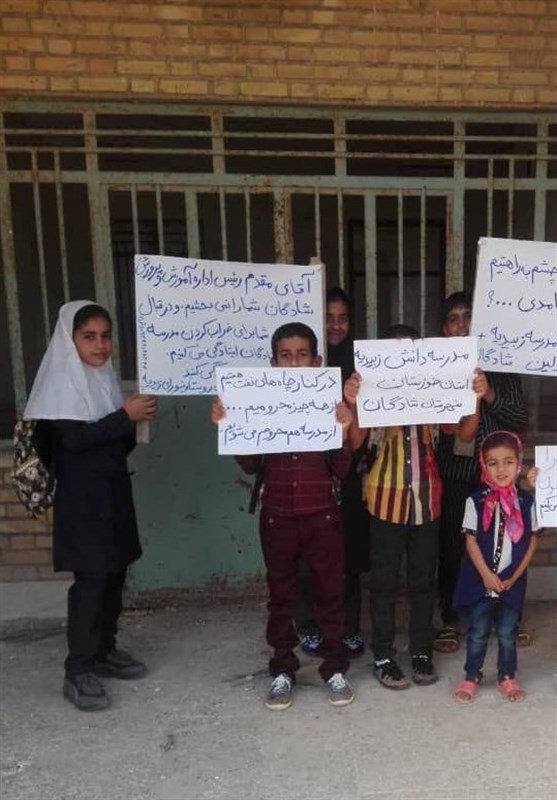 آقای مقدم رئیس اداره آموزش و پرورش
شادگان شما را نمی بخشیم. و در قبال
شما برای خراب کردن مدرسه
ایستادگی می کنیم
در کنار چاه های نفت هستیم
از همه چیز محرومیم ....
از مدرسه هم محروم می شویم.
مدرسه دانش زبیدیه
استان خوزستان
شهرستان شادگان
چشم براهتیم
آمدی ...؟
مدرسه زبیدیه +
شادگان